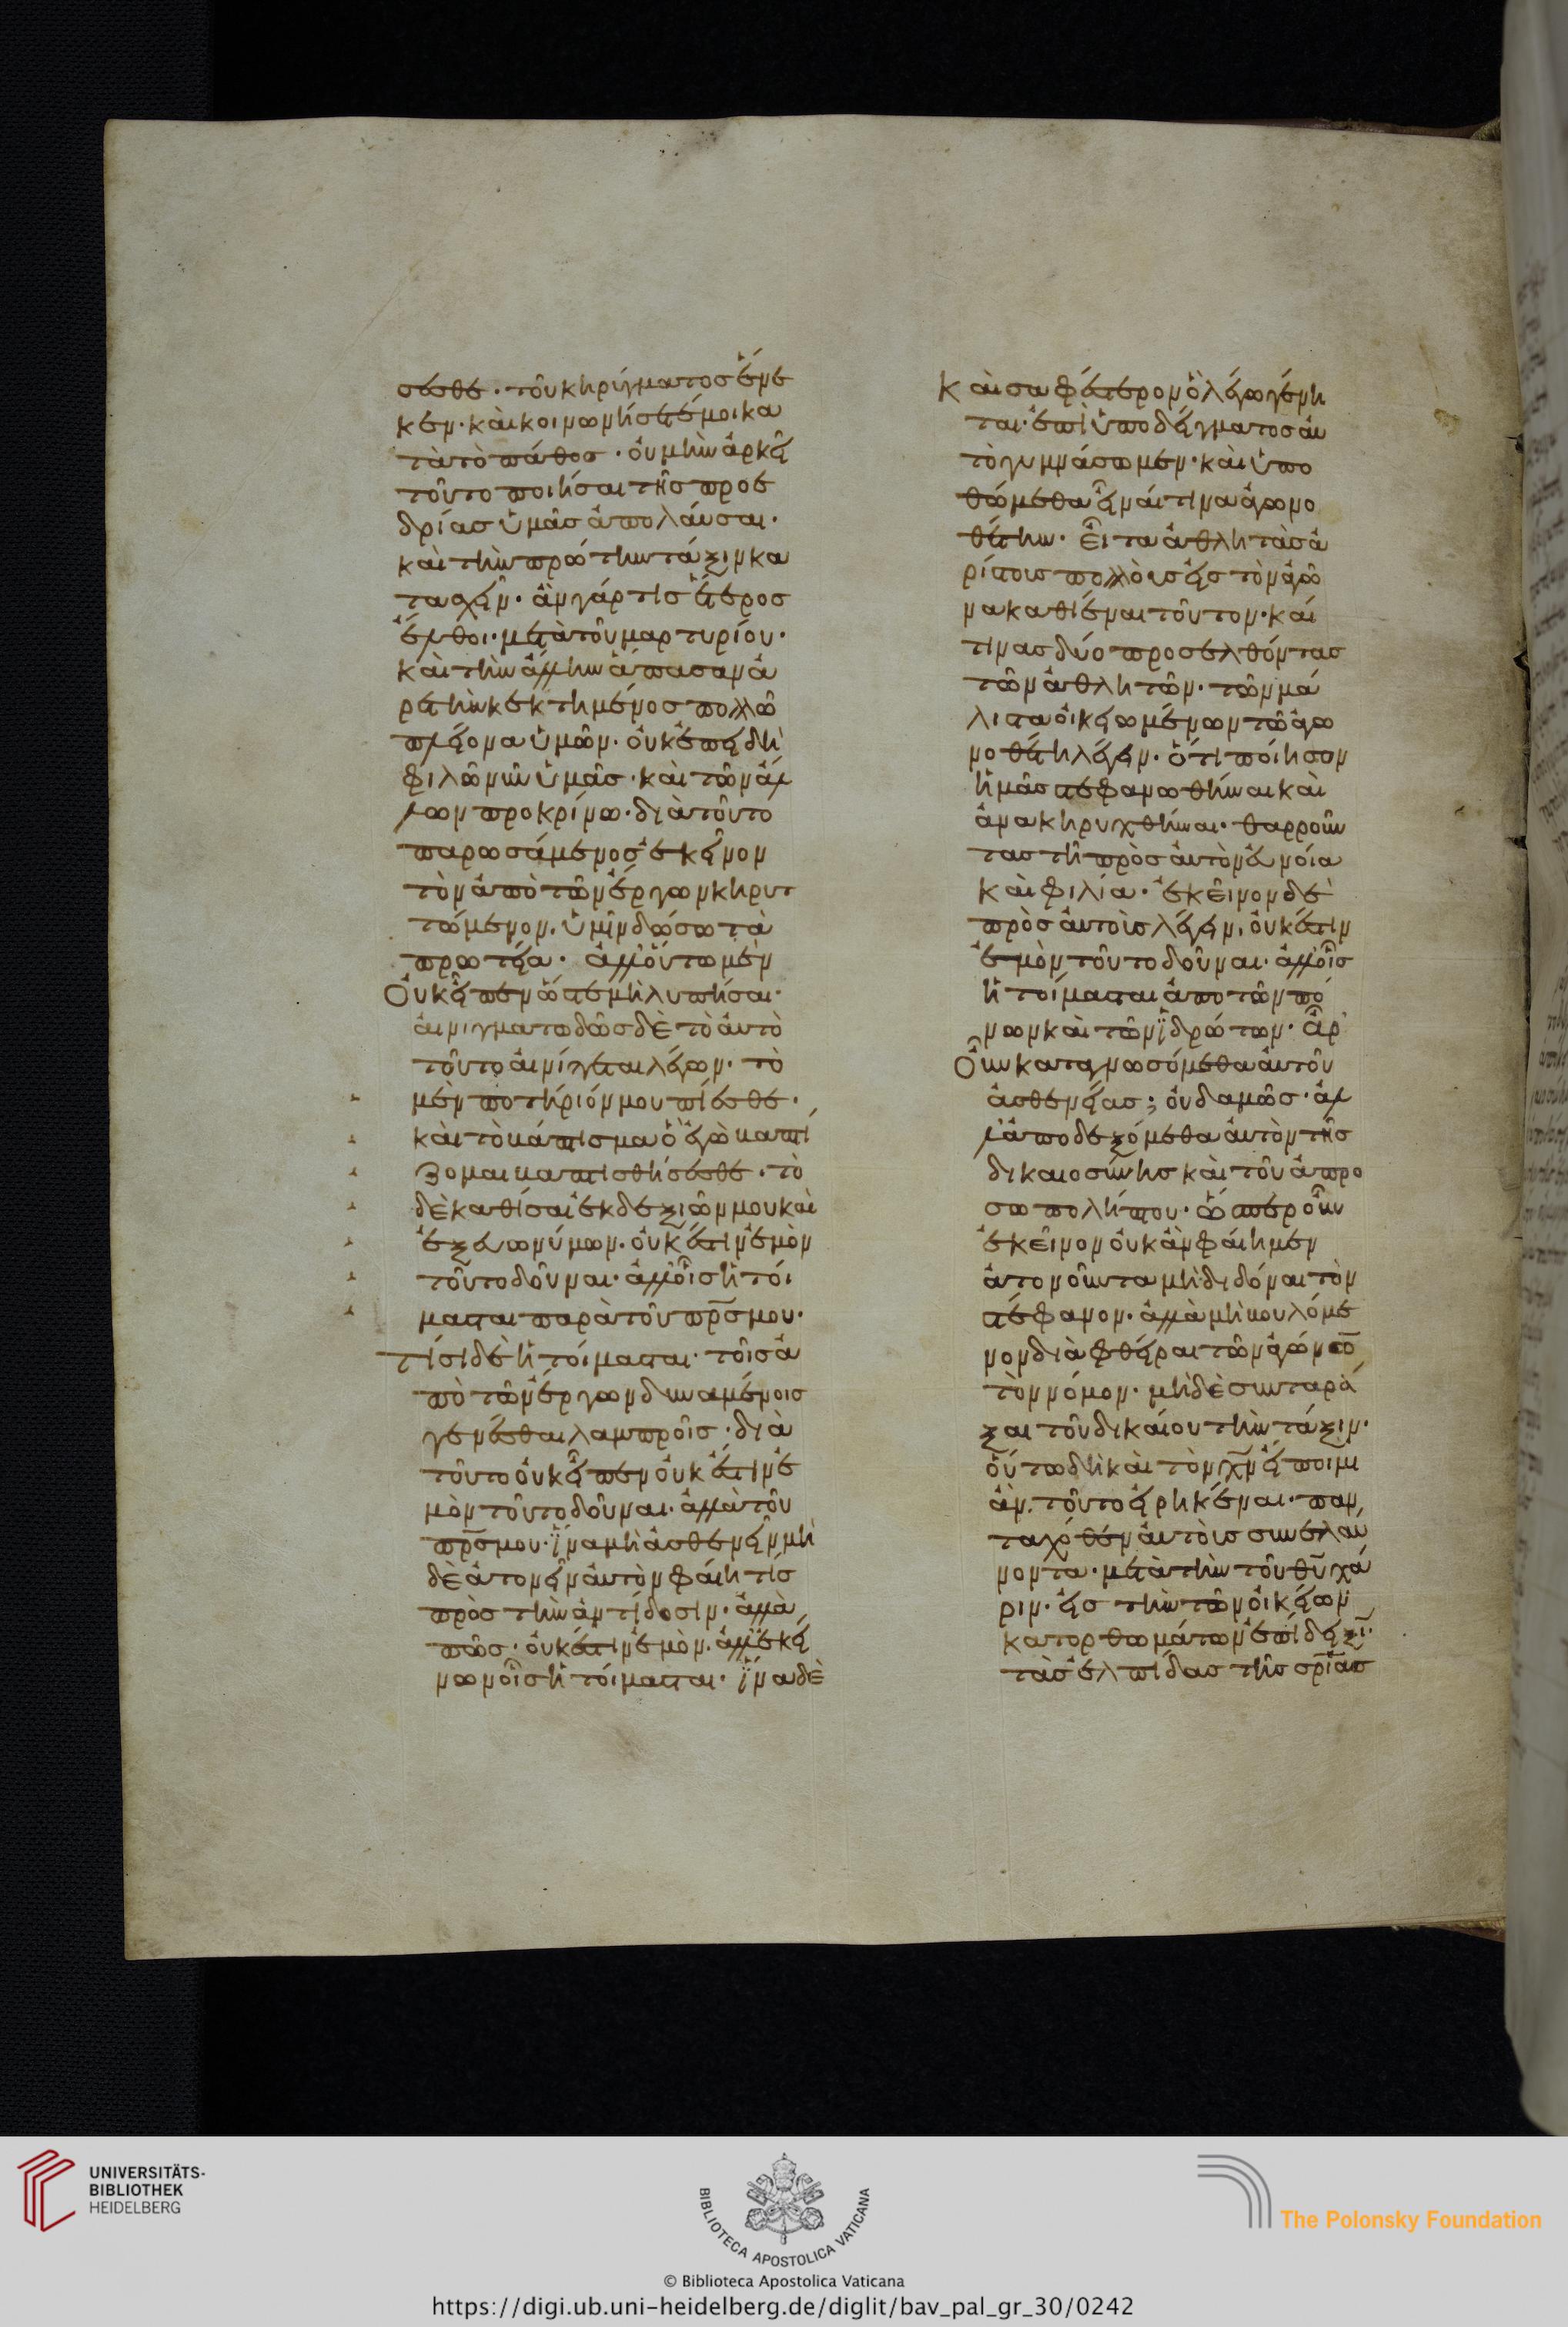 σεσθε· τοῦ κηρύγματος ἕνε
κεν· καὶ κοινωνήσετέ μοι κα
τὰ τὸ πάθος· οὐ μὴν ἀρκεῖ
τοῦτο ποιῆσαι τῆς προε
δρίας ὑμᾶς ἀπολαῦσαι·
καὶ τὴν πρώτην τάξιν κα
τασχεῖν· ἂν γάρ τις ἕτερος
ἔλθοι· μετὰ τοῦ μαρτυρίου·
καὶ τὴν ἄλλην ἅπασαν ἀ
ρετὴν κεκτημένος πολλῶ
πλείονα ὑμῶν· οὐκ ἐπειδὴ
φιλῶ νῦν ὑμᾶς· καὶ τῶν ἄλ
λων προκρίνω· διὰ τοῦτο
παρωσάμενος ἐκεῖνον
τὸν ἀπὸ τῶν ἔργων κηρυτ
τόμενον· ὑμῖν δώσω τὰ
πρωτεῖα· ἀλλ' οὕτω μὲν
Οὐκ εἶπεν ὥστε μὴ λυπῆσαι·
αἰνιγματωδῶς δὲ τὸ αὐτὸ
τοῦτο αἰνίττεται λέγων· τὸ
μὲν ποτήριόν μου πίεσθε·
καὶ τὸ βάπτισμα ὃ ἐγὼ βαπτί
ζομαι βαπτισθήσεσθε· τὸ
δὲ καθίσαι ἐκ δεξιῶν μου καὶ
ἐξ εὐωνύμων· οὐκ ἔστιν ἐμὸν
τοῦτο δοῦναι· ἀλλ' οἷς ἡτοί
μασται παρὰ τοῦ πρς μου·
τίσι δὲ ἡτοίμασται· τοῖς ἀ
πὸ τῶν ἔργων δυναμένοις
γενέσθαι λαμπροῖς· διὰ
τοῦτο οὐκ εἶπεν οὐκ ἔστιν ἐ
μὸν τοῦτο δοῦναι· ἀλλὰ τοῦ
πρς μου· ἵνα μὴ ἀσθενεῖν μη
δὲ ἀτονεῖν αὐτὸν φαίη τίς
πρὸς τὴν ἀντίδοσιν· ἀλλὰ
πῶς· οὐκ ἔστιν ἐμὸν· ἀλλ' ἐκεί
νων οἷς ἡτοίμασται· ἵνα δὲ
Καὶ σαφέστερον ὃ λέγω γένη
ται· ἐπὶ ὑποδείγματος αὐ
τὸ γυμνάσωμεν· καὶ ὑπο
θώμεθα εἶναί τινα ἀγωνο
θέτην· εἶτα ἀθλητὰς ἀ
ρίστους πολλοὺς εἰς τὸν ἀγῶ
να καθιέναι τοῦτον· καί
τινας δύο προσελθόντας
τῶν ἀθλητῶν· τῶν μά
λιστα οἰκειωμένων τῶ ἀγω
νοθέτη λέγειν· ὅτι ποίησον
ἡμᾶς στεφανωθῆναι καὶ
ἀνακηρυχθῆναι· θαρροῦν
τας τῆ πρὸς αὐτὸν εὐνοία
καὶ φιλία· ἐκεῖνον δὲ
πρὸς αὐτοὺς λέγειν, οὐκ ἔστιν
ἐμὸν τοῦτο δοῦναι· ἀλλ' οἷς
ἡτοίμασται ἀπὸ τῶν πό
νων καὶ τῶν ἱδρώτων· ἆρ'
Οὖν καταγνωσόμεθα αὐτοῦ
ἀσθένειαν; οὐδαμῶς· ἀλ
λ' ἀποδεξόμεθα αὐτὸν τῆς
δικαιοσύνης καὶ τοῦ ἀπρο
σωπολήπτου· ὥσπερ οὖν
ἐκεῖνον οὐκ ἂν φαίημεν
ἀτονοῦντα μὴ διδόναι τὸν
στέφανον· ἀλλὰ μὴ βουλόμε
νον διαφθεῖραι τῶν ἀγώνων
τὸν νόμον· μηδὲ συνταρά
ξαι τοῦ δικαίου τὴν τάξιν·
οὕτω δὴ καὶ τὸν χν εἴποιμι
ἂν· τοῦτο εἰρηκέναι· παν
ταχόθεν αὐτοὺς συνελαύ
νοντα· μετὰ τὴν τοῦ θυ χά
ριν· εἰς τὴν τῶν οἰκείων
κατορθωμάτων ἐπίδειξιν·
τὰς ἐλπίδας τῆς σρίας
UNIVERSITÄTS-
BIBLIOTHEK
HEIDELBERG
BIBLIOTECA APOSTOLICA VATICANA
The Polonsky Foundation
© Biblioteca Apostolica Vaticana
https://digi.ub.uni-heidelberg.de/diglit/bav_pal_gr_30/0242